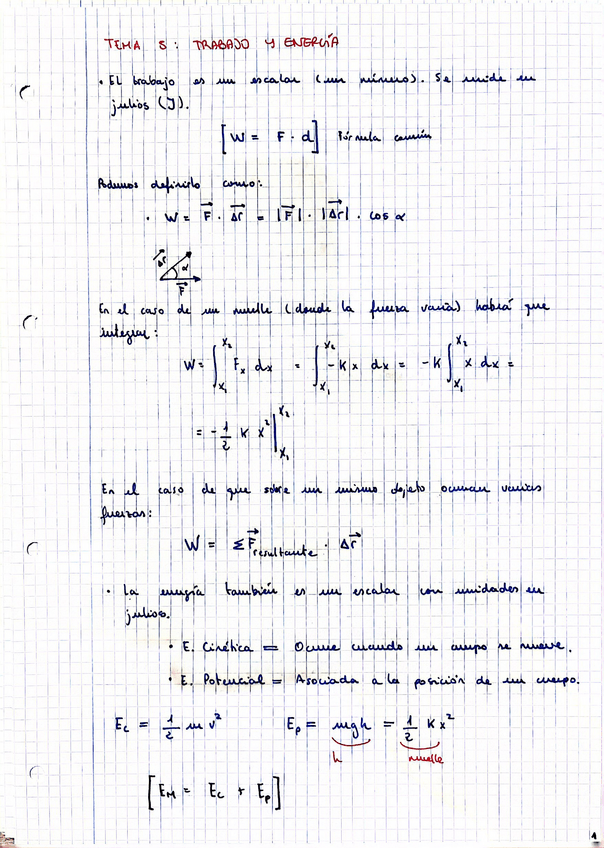 TEMA 5: TRABAJO Y ENERGÍA
• EL trabajo es un escalar (un número). Se mide en
julios (J).
[W = F · d] Fórmula común
Podemos definirlo como:
• W = F⃗ · Δr⃗ = |F⃗| · |Δr⃗| · cos α
Δr⃗ α
F⃗
En el caso de un muelle (donde la fuerza varía) habrá que
integrar:
W = ∫_{x₁}^{x₂} Fₓ dx = ∫_{x₁}^{x₂} -K x dx = -K ∫_{x₁}^{x₂} x dx =
= - 1/2 K x² |_{x₁}^{x₂}
En el caso de que sobre un mismo objeto ocurran varias
fuerzas:
W = ΣF⃗ resultante · Δr⃗
• La energía también es un escalar con unidades en
julios.
• E. Cinética = Ocurre cuando un cuerpo se mueve.
• E. Potencial = Asociada a la posición de un cuerpo.
E_c = 1/2 m v² E_p = mgh = 1/2 K x²
h muelle
[E_M = E_c + E_p]
1